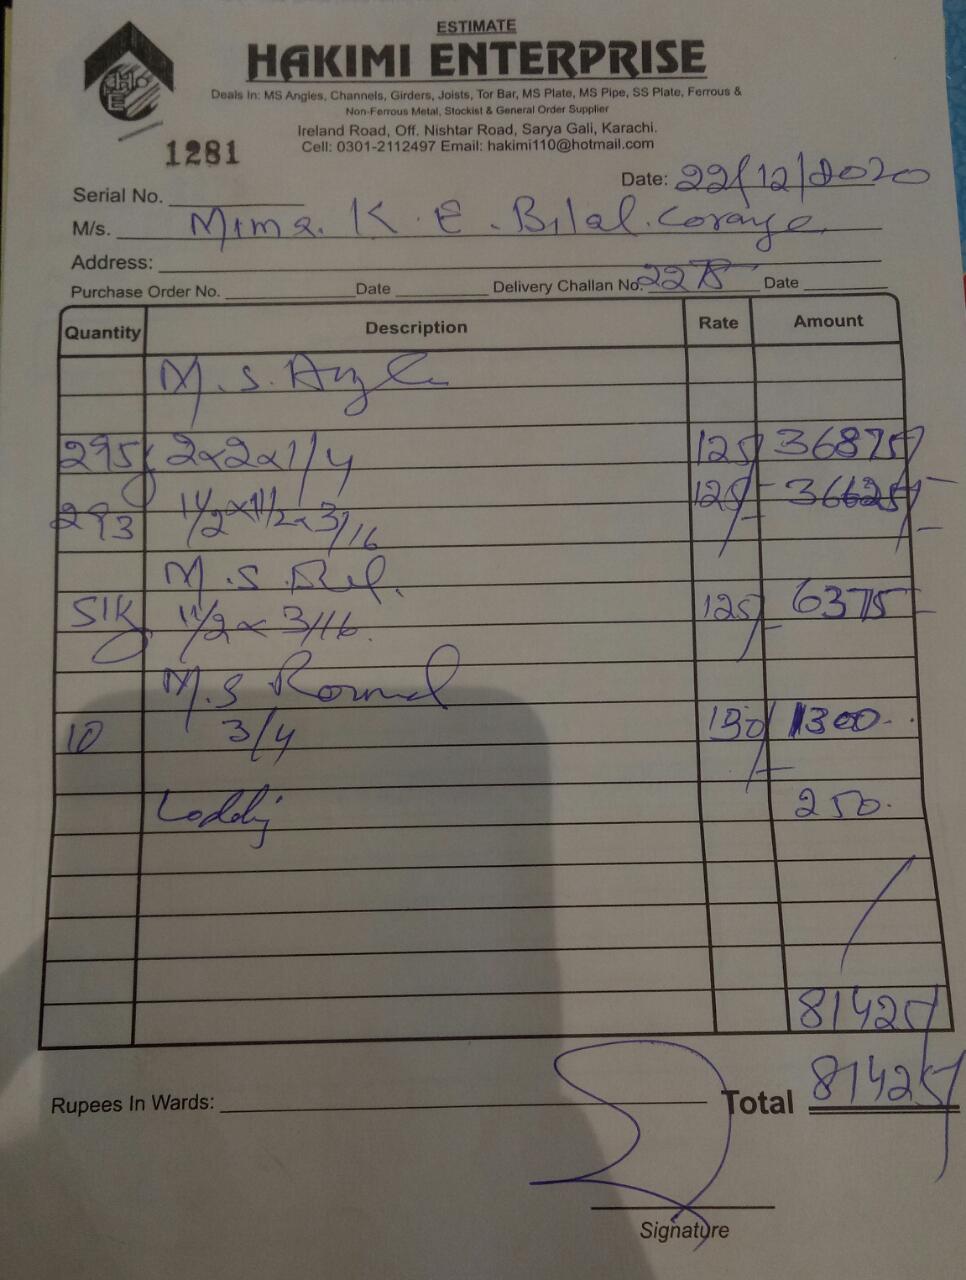 ESTIMATE
HAKIMI ENTERPRISE
Deals In: MS Angles, Channels, Girders, Joists, Tor Bar, MS Plate, MS Pipe, SS Plate, Ferrous &
Non-Ferrous Metal, Stockist & General Order Supplier
Ireland Road, Off. Nishtar Road, Sarya Gali, Karachi.
Cell: 0301-2112497 Email: hakimi110@hotmail.com
1281
Date: 22/12/2020
Serial No.
M/s. K.E. Bilal
Address:
Purchase Order No. Date Delivery Challan No. 2278 Date
Quantity Description Rate Amount
M.S. Angle
295 2x2x1/4 125/- 36875/-
293 1 1/2 x 1 1/2 x 3/16 125/- 36625/-
M.S.
51K 1 1/2 x 3/16 125/- 6375/-
M.S Round
10 3/4 130/- 1300
Loddij 250
81425/-
Rupees In Wards: Total 81425/-
Signature